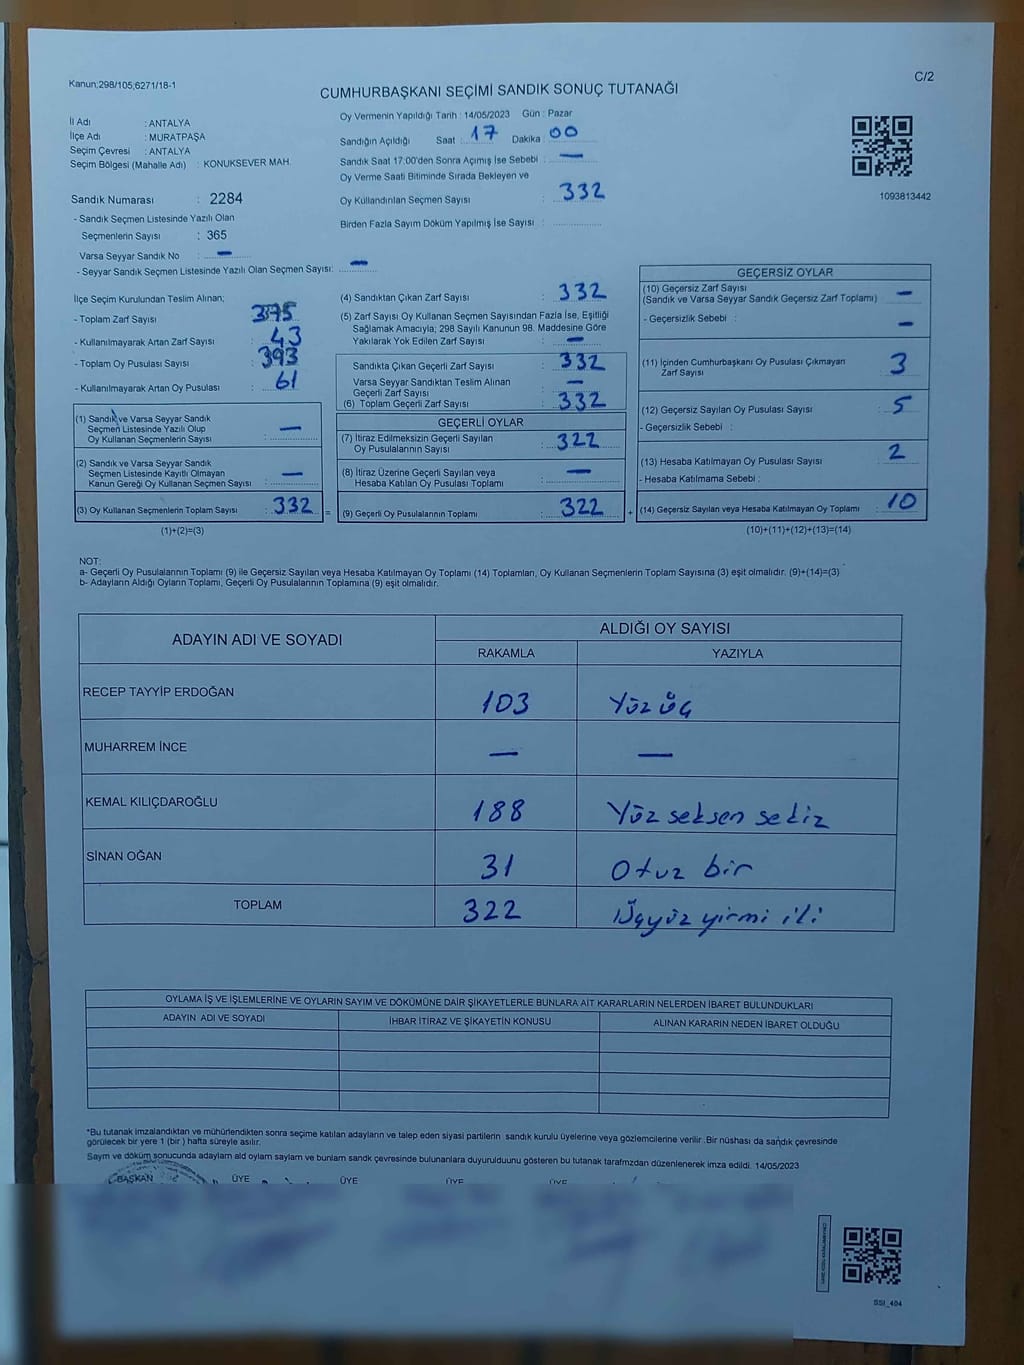 Kanun;298/105;6271/18-1
C/2
CUMHURBAŞKANI SEÇİMİ SANDIK SONUÇ TUTANAĞI
İl Adı : ANTALYA
İlçe Adı : MURATPAŞA
Seçim Çevresi : ANTALYA
Seçim Bölgesi (Mahalle Adı) : KONUKSEVER MAH.
Oy Vermenin Yapıldığı Tarih : 14/05/2023 Gün : Pazar
Sandığın Açıldığı Saat : 17 Dakika : 00
Sandık Saat 17:00'den Sonra Açımış İse Sebebi : —
Oy Verme Saati Bitiminde Sırada Bekleyen ve
Oy Kullandırılan Seçmen Sayısı : 332
Birden Fazla Sayım Döküm Yapılmış İse Sayısı :
1093813442
Sandık Numarası : 2284
- Sandık Seçmen Listesinde Yazılı Olan
Seçmenlerin Sayısı : 365
Varsa Seyyar Sandık No : —
- Seyyar Sandık Seçmen Listesinde Yazılı Olan Seçmen Sayısı: —
İlçe Seçim Kurulundan Teslim Alınan;
- Toplam Zarf Sayısı : 375
- Kullanılmayarak Artan Zarf Sayısı : 43
- Toplam Oy Pusulası Sayısı : 393
- Kullanılmayarak Artan Oy Pusulası : 61
(1) Sandık ve Varsa Seyyar Sandık
Seçmen Listesinde Yazılı Olup
Oy Kullanan Seçmenlerin Sayısı : —
(2) Sandık ve Varsa Seyyar Sandık
Seçmen Listesinde Kayıtlı Olmayan
Kanun Gereği Oy Kullanan Seçmen Sayısı : —
(3) Oy Kullanan Seçmenlerin Toplam Sayısı : 332 =
(1)+(2)=(3)
(4) Sandıktan Çıkan Zarf Sayısı : 332
(5) Zarf Sayısı Oy Kullanan Seçmen Sayısından Fazla İse, Eşitliği
Sağlamak Amacıyla; 298 Sayılı Kanunun 98. Maddesine Göre
Yakılarak Yok Edilen Zarf Sayısı : —
Sandıkta Çıkan Geçerli Zarf Sayısı : 332
Varsa Seyyar Sandıktan Teslim Alınan
Geçerli Zarf Sayısı : —
(6) Toplam Geçerli Zarf Sayısı : 332
GEÇERLİ OYLAR
(7) İtiraz Edilmeksizin Geçerli Sayılan
Oy Pusulalarının Sayısı : 322
(8) İtiraz Üzerine Geçerli Sayılan veya
Hesaba Katılan Oy Pusulası Toplamı : —
(9) Geçerli Oy Pusulalarının Toplamı : 322 +
GEÇERSİZ OYLAR
(10) Geçersiz Zarf Sayısı
(Sandık ve Varsa Seyyar Sandık Geçersiz Zarf Toplamı) : —
- Geçersizlik Sebebi : —
(11) İçinden Cumhurbaşkanı Oy Pusulası Çıkmayan
Zarf Sayısı : 3
(12) Geçersiz Sayılan Oy Pusulası Sayısı : 5
- Geçersizlik Sebebi :
(13) Hesaba Katılmayan Oy Pusulası Sayısı : 2
- Hesaba Katılmama Sebebi :
(14) Geçersiz Sayılan veya Hesaba Katılmayan Oy Toplamı : 10
(10)+(11)+(12)+(13)=(14)
NOT:
a- Geçerli Oy Pusulalarının Toplamı (9) ile Geçersiz Sayılan veya Hesaba Katılmayan Oy Toplamı (14) Toplamları, Oy Kullanan Seçmenlerin Toplam Sayısına (3) eşit olmalıdır. (9)+(14)=(3)
b- Adayların Aldığı Oyların Toplamı, Geçerli Oy Pusulalarının Toplamına (9) eşit olmalıdır.
ADAYIN ADI VE SOYADI
ALDIĞI OY SAYISI
RAKAMLA YAZIYLA
RECEP TAYYİP ERDOĞAN 103 Yüz üç
MUHARREM İNCE — —
KEMAL KILIÇDAROĞLU 188 Yüz seksen sekiz
SİNAN OĞAN 31 Otuz bir
TOPLAM 322 Üçyüz yirmi iki
OYLAMA İŞ VE İŞLEMLERİNE VE OYLARIN SAYIM VE DÖKÜMÜNE DAİR ŞİKAYETLERLE BUNLARA AİT KARARLARIN NELERDEN İBARET BULUNDUKLARI
ADAYIN ADI VE SOYADI İHBAR İTİRAZ VE ŞİKAYETİN KONUSU ALINAN KARARIN NEDEN İBARET OLDUĞU
*Bu tutanak imzalandıktan ve mühürlendikten sonra seçime katılan adayların ve talep eden siyasi partilerin sandık kurulu üyelerine veya gözlemcilerine verilir .Bir nüshası da sandık çevresinde
görülecek bir yere 1 (bir ) hafta süreyle asılır.
Sayım ve döküm sonucunda adaylam ald oylam saylam ve bunlam sandk çevresinde bulunanlara duyurulduunu gösteren bu tutanak tarafmzdan düzenlenerek imza edildi. 14/05/2023
BAŞKAN ÜYE ÜYE ÜYE ÜYE
SSI_404